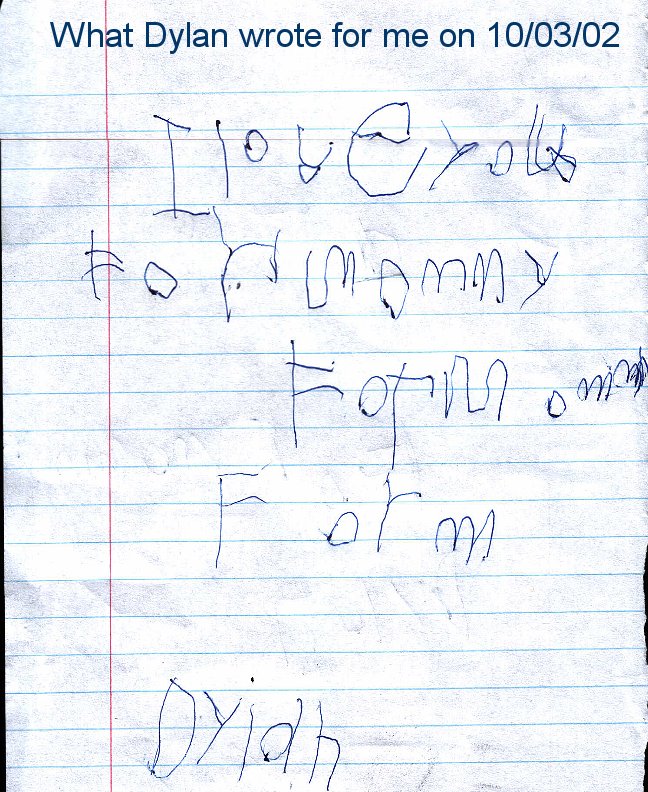 What Dylan wrote for me on 10/03/02
I love you
For mommy
Form omm
Form
Dylan